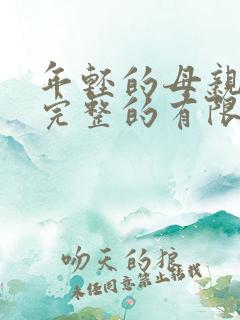 年轻的母親
完整的有限
吻天的狼
未经同意禁止转载